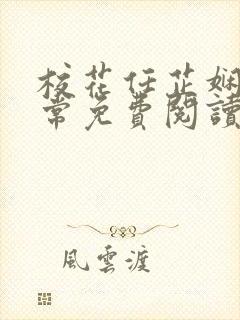 校花任芷嫻
常免費閱讀
風雲渡